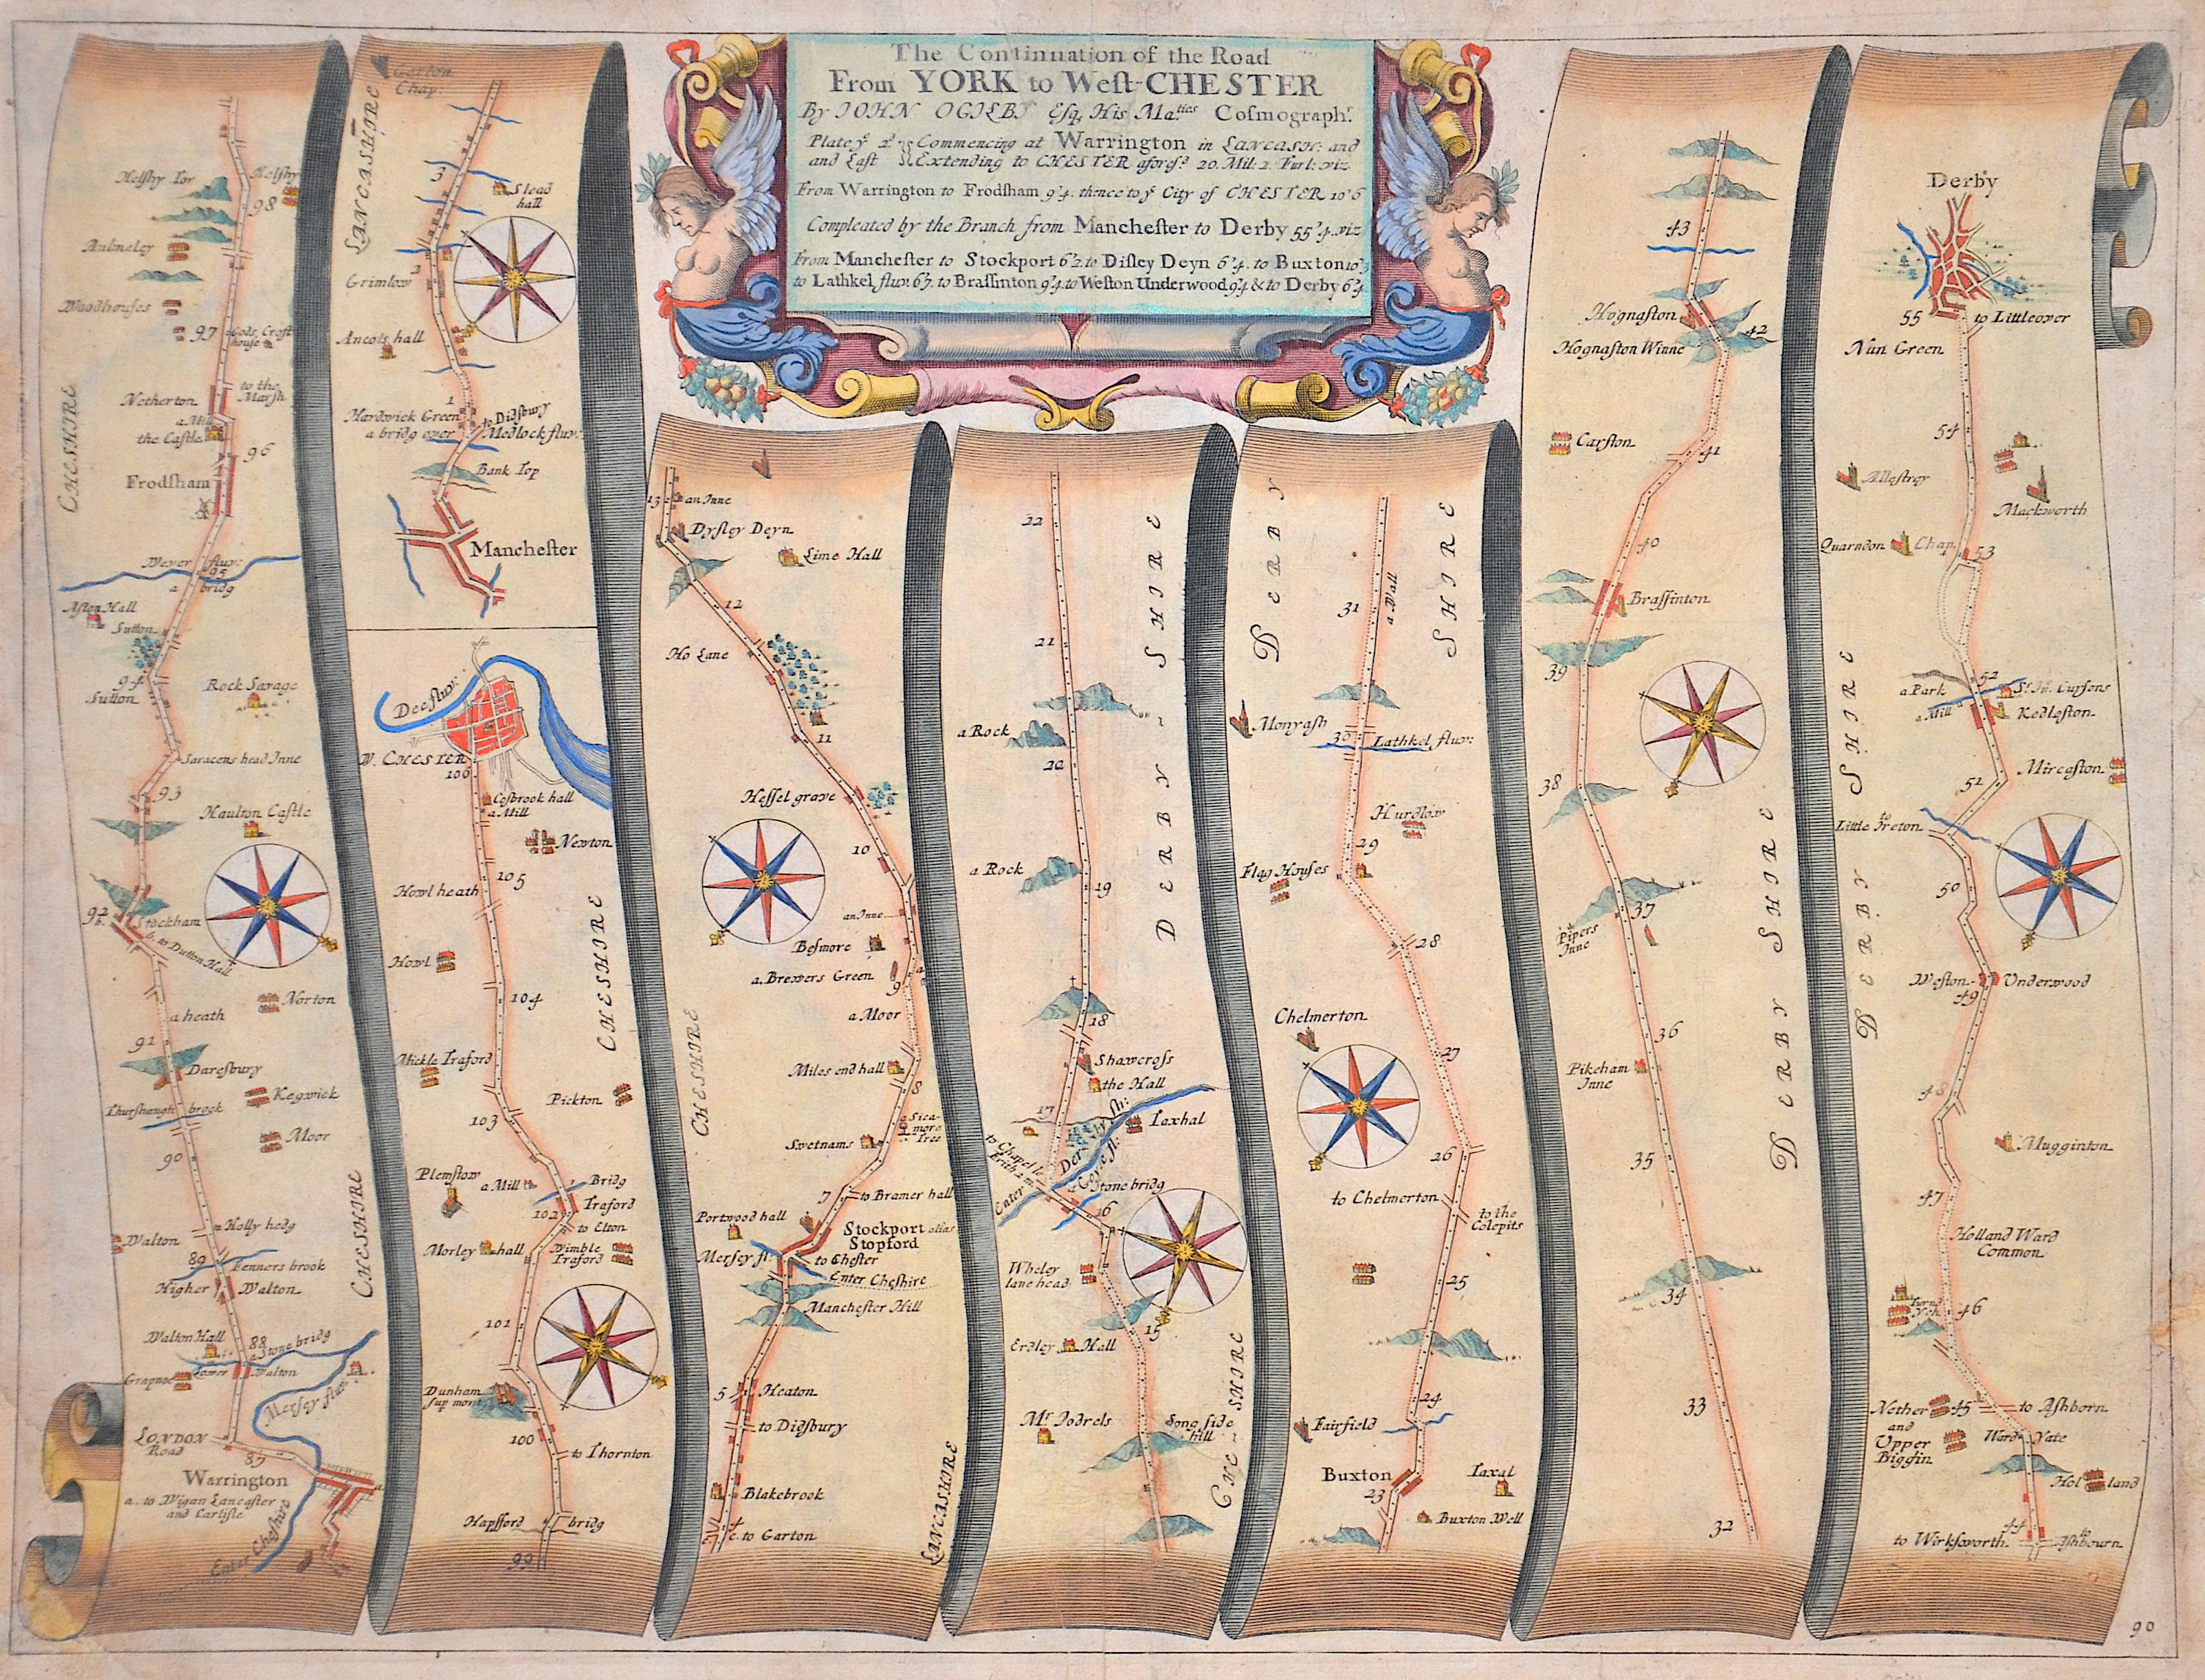 The Continuation of the Road
From YORK to West-CHESTER
By IOHN OGILBY Esq. His Ma.ties Cosmograph.r
Plate y.e 2.d Commencing at Warrington in LANCASH: and
and East Extending to CHESTER afores.d 20. Mil: 2. Furl: viz
From Warrington to Frodsham 9'4. thence to y.e City of CHESTER 10'6
Compleated by the Branch from Manchester to Derby 55'4. viz
From Manchester to Stockport 6'2. to Disley Deyn 6'4. to Buxton 10'3
to Lathkel fluv. 6'7. to Brassinton 9'4. to Weston Underwood 9'4 & to Derby 6'4
Helsby Tor
Helsby
98
Aulmeley
Woodhouses
97
Gods Croft
house
to the
Marsh
Netherton
a Mill
the Castle
96
Frodsham
CHESHIRE
Wever fluv:
95
a bridg
Aston Hall
Sutton
94
Sutton
Rock Savage
Saracens head Inne
93
Haulton Castle
92
b.
Stockham
b. to Dutton Hall
Norton
a heath
91
Daresbury
Kegwick
Thurshaugh brook
Moor
90
Holly hedg
Walton
89
Fenners brook
Higher Walton
CHESHIRE
Walton Hall
88
a Stone bridg
Grapnoe
Lower Walton
Mersey fluv.
LONDON
Road
87
Warrington
a
a. to Wigan Lancaster
and Carlisle
Enter Cheshire
Gorton
Chap:
LANCASHIRE
3
Slead
hall
2
Grimlow
Ancots hall
1
Hardwick Green
to Didsbury
a bridg over
Medlock fluv:
Bank Top
Manchester
Dee fluv:
W. CHESTER
106
Cesbrook hall
a Mill
Newton
105
Howl heath
Howl
104
CHESHIRE
Mickle Traford
Pickton
103
Plemstow
a Mill
Bridg
Traford
102
to Elton
Morley hall
Wimble
Traford
101
Dunham
sup mont
100
to Thornton
Hapsford bridg
99
13
an Inne
Dysley Deyn
Lime Hall
12
Ho Lane
11
Hessel grave
10
an Inne
Besmore
a. Brewers Green
a
9
a Moor
CHESHIRE
Miles end hall
8
a Sica-
more
Tree
Swetnams
7
to Bramer hall
Portwood hall
Stockport alias
Stopford
Mersey fl:
to Chester
6
Enter Cheshire
Manchester Hill
5
Heaton
to Didsbury
Blakebrook
4
c
c. to Gorton
LANCASHIRE
22
21
a Rock
20
a Rock
19
DERBY-SHIRE
18
Shawcross
the Hall
17
Taxhal
to Chapel le
Frith
Enter Derbysh:
Goyt fl:
a Stone bridg
16
Wheler
lane head
15
Erdley Hall
Mr. Jodrels
Long side
hill
CHE-SHIRE
DERBY SHIRE
31
a Wall
Monyash
30
Lathkel fluv:
Hurdlow
29
Flag Houses
28
Chelmerton
27
26
to Chelmerton
to the
Colepits
25
24
Fairfield
Buxton
23
Taxal
Buxton Well
43
Hognaston
42
Hognaston Winne
Carston
41
40
Brassinton
39
38
37
Pipers
Inne
36
Pikeham
Inne
DERBY SHIRE
35
34
33
32
Derby
55
to Littleover
Nun Green
54
Allestrey
Mackworth
Quarndon
Chap.
53
52
a Park
Sr. Jn. Cursons
a Mill
Kedleston
DERBY SHIRE
51
Mircaston
to
Little Ireton
50
Weston-Underwood
49
48
Mugginton
47
Holland Ward
Common
46
45
to Ashborn
Nether
and
Upper
Biggin
Ward Yate
Holland
44
to Wirksworth
to
Ashbourn
90